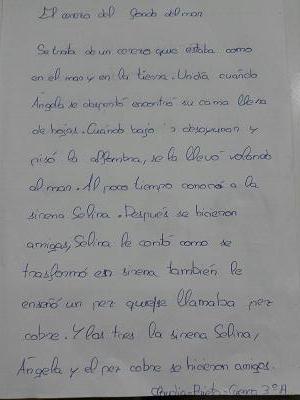 El cerezo del fondo del mar
Se trata de un cerezo que estaba como
en el mar y en la tierra. Un día cuándo
Ángela se despertó encontró su cama llena
de hojas. Cuándo bajo a desayunar y
pisó la alfombra, se la llevó volando
al mar. Al poco tiempo conoció a la
sirena Selina. Después se hicieron
amigas, Selina le contó como se
trasformó en sirena también le
enseñó un pez que se llamaba pez
cobre. Y las tres la sirena Selina,
Ángela y el pez cobre se hicieron amigas.
Claudia Prieto 3º A